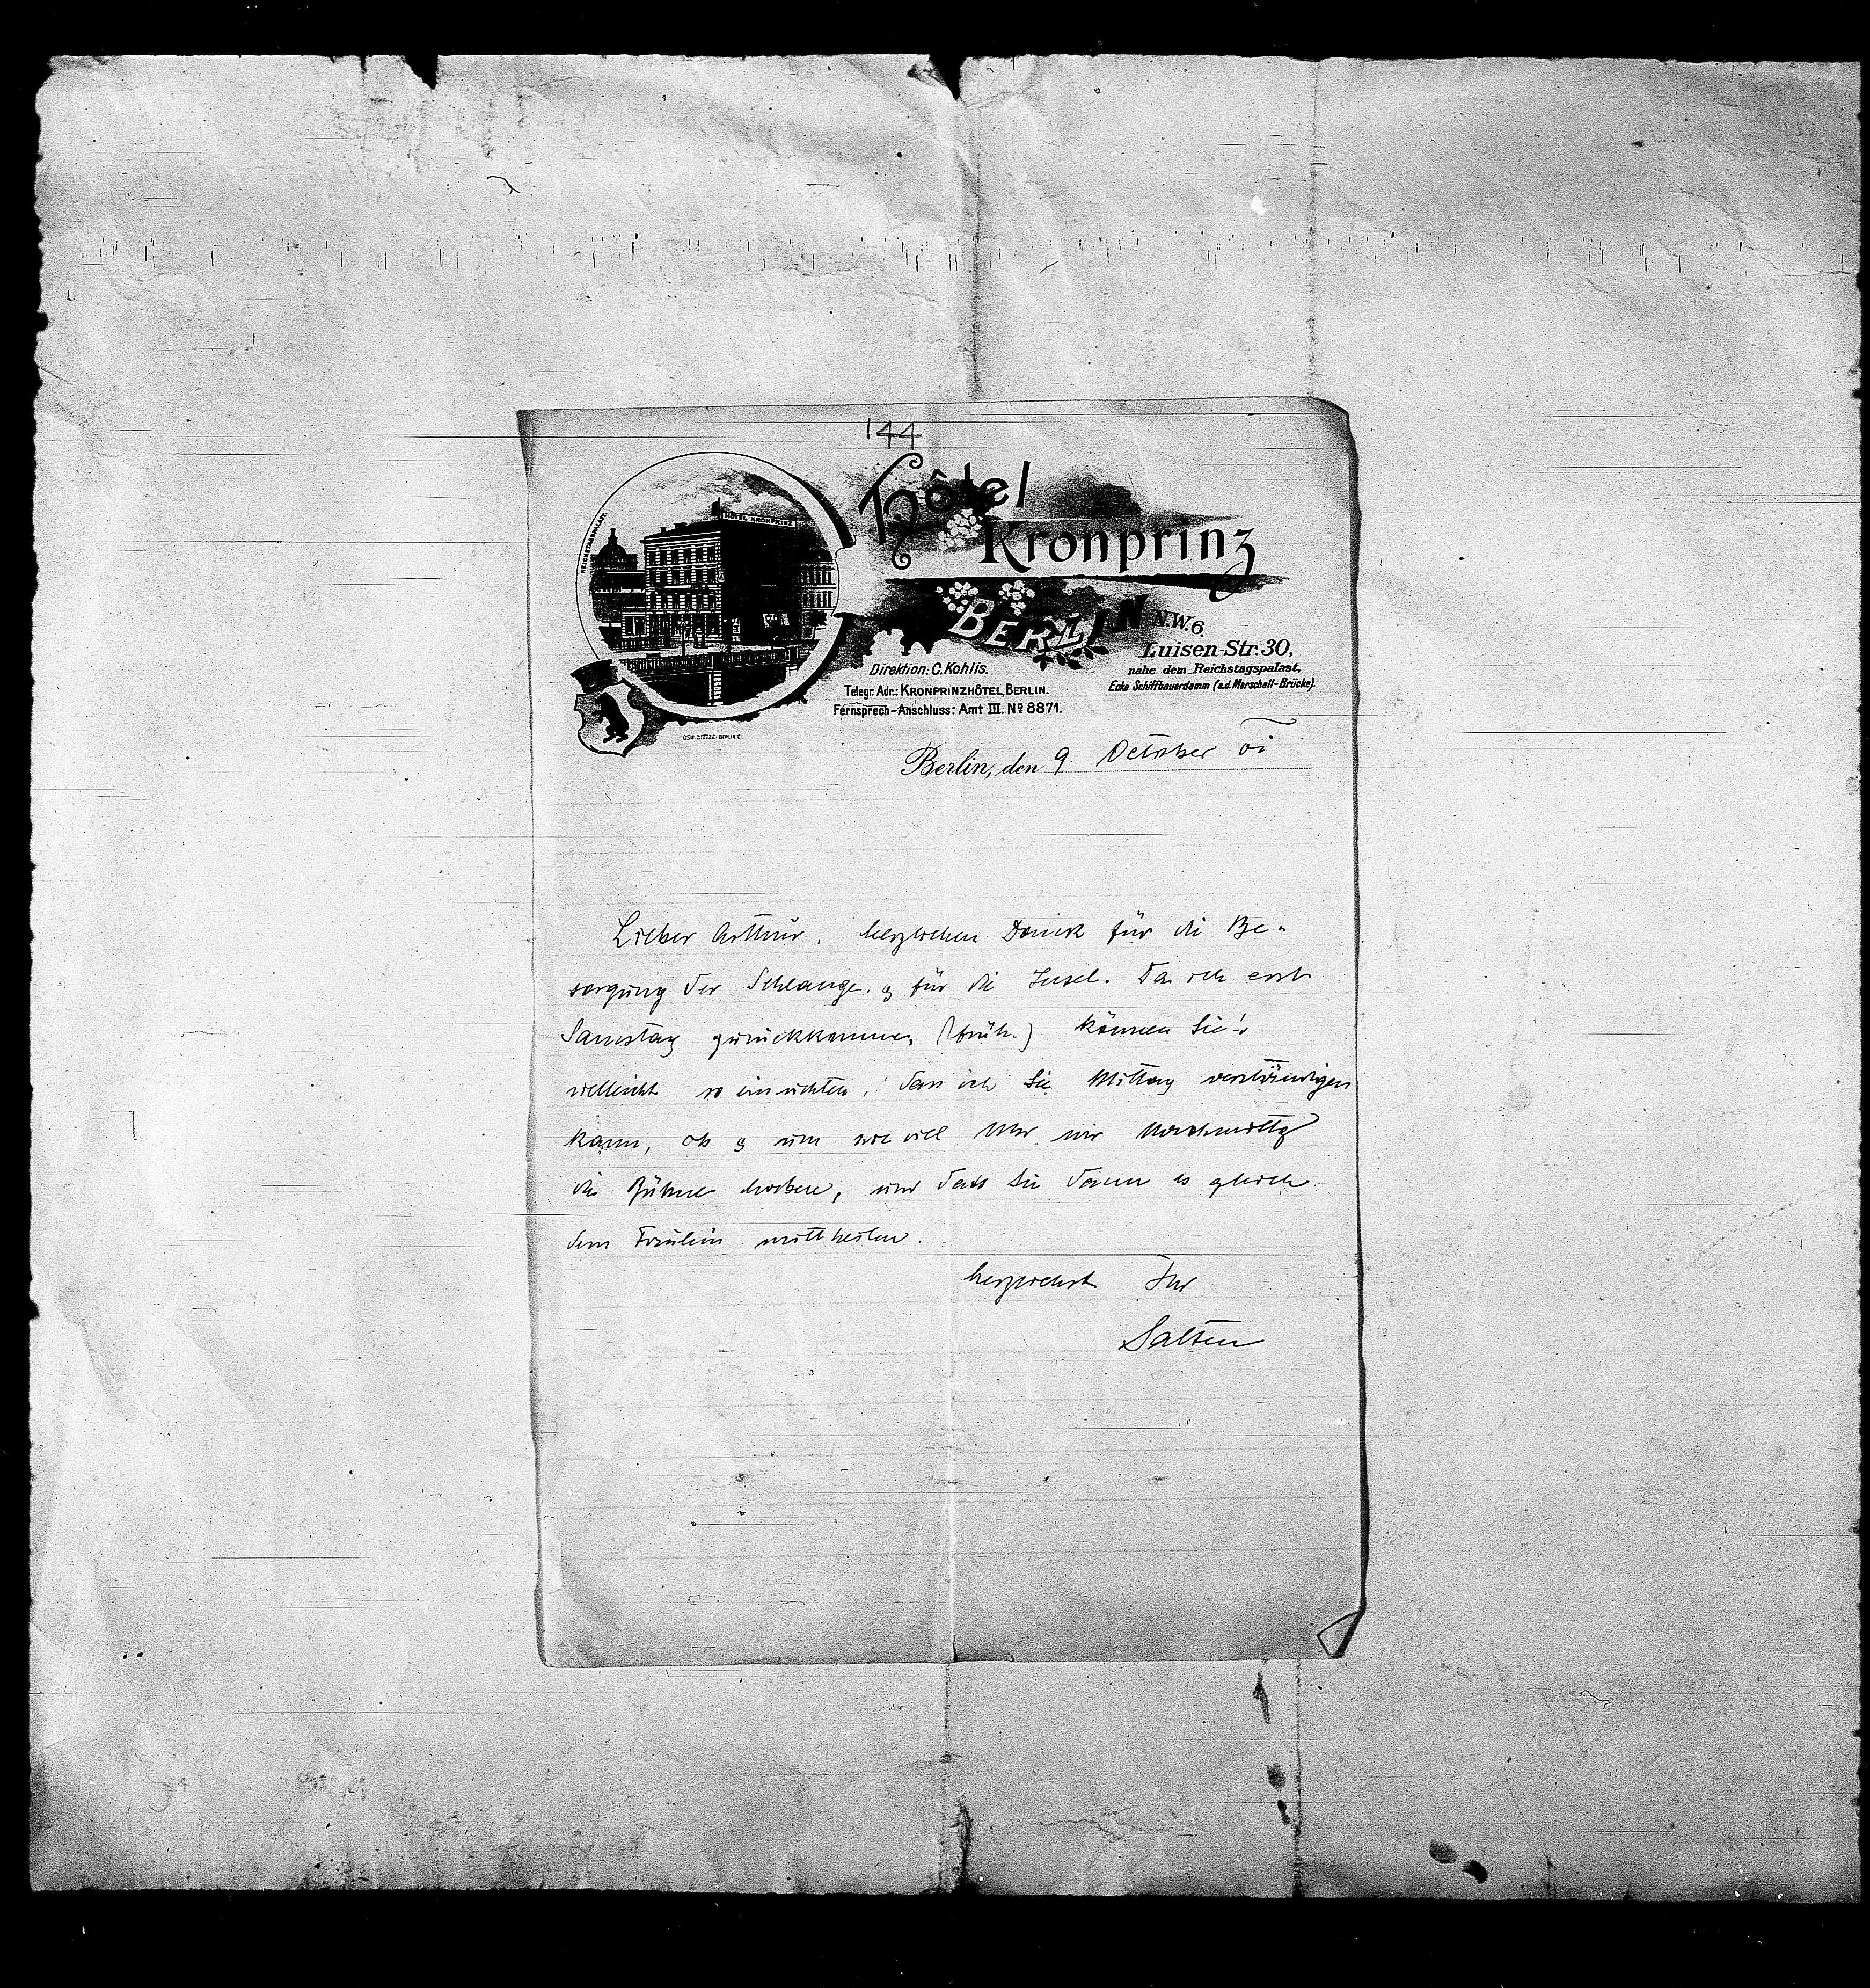 144
Hôtel
Kronprinz
REICHSTAGSPALAST.
HÔTEL KRONPRINZ
BERLIN N.W.6.
Luisen-Str. 30,
nahe dem Reichstagspalast,
Ecke Schiffbauerdamm (a.d. Marschall-Brücke).
Direktion: C. Kohlis.
Telegr. Adr.: KRONPRINZHÔTEL, BERLIN.
Fernsprech-Anschluss: Amt III. Nº 8871.
OSW. DIETZE-BERLIN C.
Berlin, den 9. October 01
Lieber Arthur, herzlichen Dank für die Be-
sorgung der Schlange. & für die Insel. Da ich erst
Samstag zurückkomme, (früh.) können Sie's
vielleicht so einrichten, dass ich Sie Mittag verständigen
kann, ob & um wie viel Uhr wir Nachmittg
die Bühne haben, und dass Sie dann es gleich
dem Fräulein mittheilen.
herzlichst Ihr
Salten